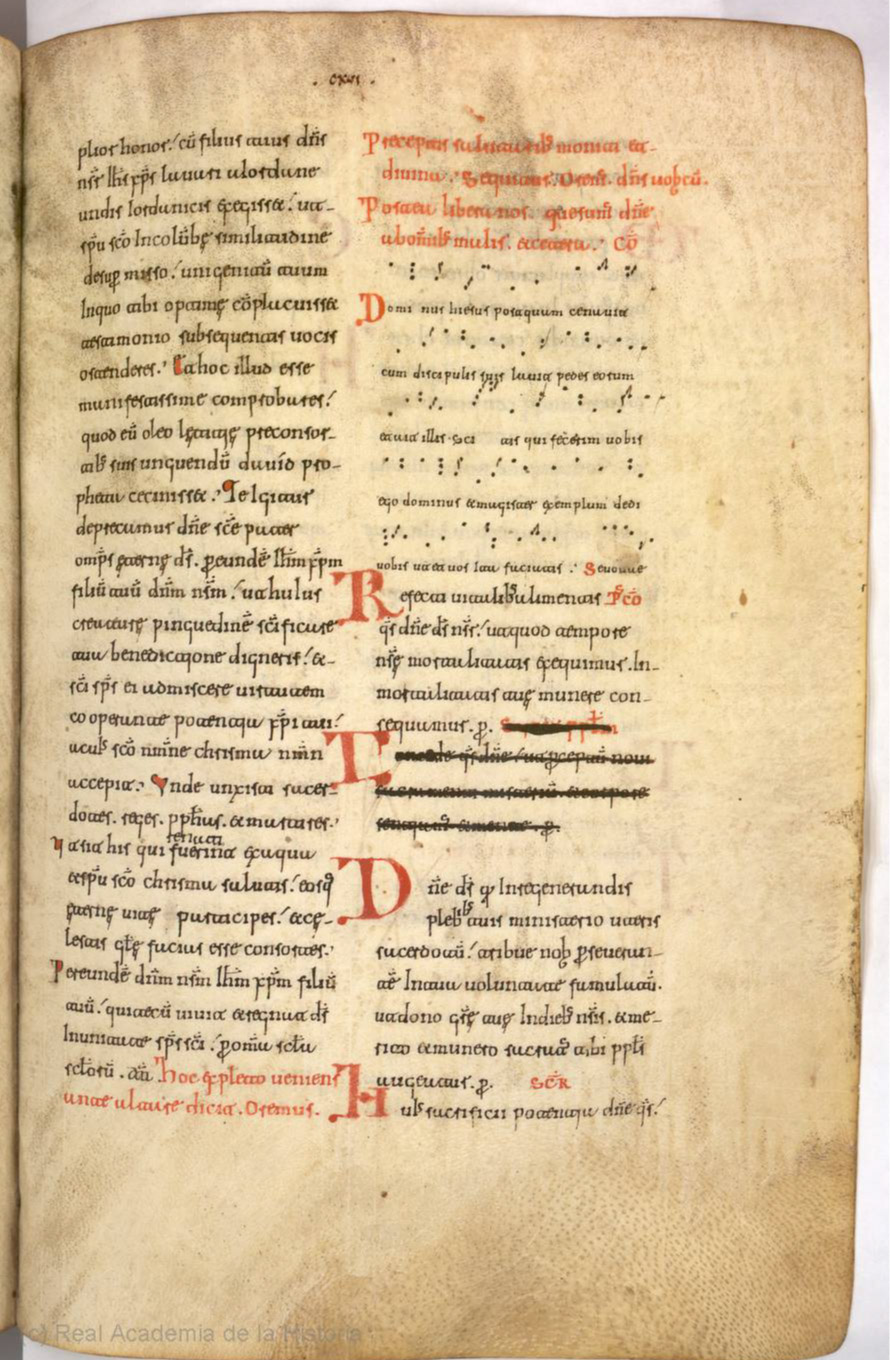 . cxvi .
plior honor. cū filius tuus dn̄s
nr̄ ihs xp̄s lavari a iordane
undis iordanicis exegisset. ut
spū sc̄o in columbę similitudine
desup misso. unigenitū tuum
In quo tibi optimę cōplacuisse
testimonio subsequentis vocis
ostenderes. Et hoc illud esse
manifestissime comprobares.
quod eū oleo lętitię preconsor-
tib; suis unguendū david pro-
pheta cecinisset. Te igitur
deprecamus dn̄e sc̄e pater
omp̄s ęternę ds̄. p eunde ihm xp̄m
filiū tuū dn̄m nr̄m. ut huius
creaturę pinguedinē sc̄ificare
tua benedictione digneris. &
sc̄i sp̄s ei admiscere virtutem
cooperante potentia xp̄i tui.
a cuius sc̄o nomine chrisma nomen
accepit. Unde unxisti sacer-
dotes. reges. pphetas. & martires.
Ut sit his qui renati fuerint ex aqua
et spū sc̄o chrisma salutis. eosq;
ęternę vitę participes. et cę-
lestis glę facias esse consortes.
Per eundē dn̄m nr̄m ihm xp̄m filiū
tuū. qui tecū vivit & regnat ds̄
In unitate sp̄s sc̄i. p om̄a scla
sclorū. am̄. Hoc expleto veniens
ante altare dicit. Oremus.
Preceptis salutarib; moniti et
divina. Sequitur. Orem̄. dn̄s vobcū.
Postea libera nos quesum̄ dn̄e
ab omīb; malis. et cetera. Cō
Domi nus hiesus postquam cenavit
cum discipulis suis lavit pedes eorum
et ait illis sci tis qui fecerim vobis
ego dominus & magister exemplum dedi
vobis ut et vos ita faciatis. Sevovae
Refecti vitalib; alimentis Pcō
qs̄ dn̄e ds̄ nr̄. ut quod tempore
nr̄ę mortalitatis exequimus. In-
mortalitatis tuę munere con-
sequamus. p.
Concede qs̄ dn̄e ut pcepti novi
sacramenta misteriū. et corpore
sentiam̄ & mente. p.
Dn̄e ds̄ q In regenerandis
pleb; tuis ministerio uteris
sacerdotū. tribue nob pseveran-
tē In tua voluntate famulatū.
ut dono grę tuę In dieb; nr̄is. & me-
rito & numero sacrat tibi ppl̄s
augeatur. p. SCR
Huius sacrificii potentia dn̄e qs̄.
(c) Real Academia de la Historia